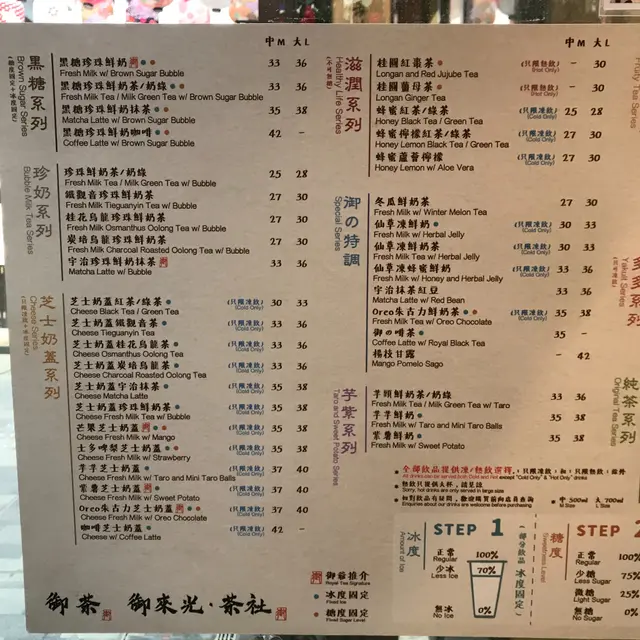 中 M 大 L
黑糖系列
Brown Sugar Series
(糖度固定+冰度固定)
黑糖珍珠鮮奶 33 36
Fresh Milk w/ Brown Sugar Bubble
黑糖珍珠鮮奶茶/奶綠 33 36
Fresh Milk Tea / Milk Green Tea w/ Brown Sugar Bubble
黑糖珍珠鮮奶抹茶 35 38
Matcha Latte w/ Brown Sugar Bubble
黑糖珍珠鮮奶咖啡 42 -
Coffee Latte w/ Brown Sugar Bubble
珍奶系列
Bubble Milk Tea Series
珍珠鮮奶茶/奶綠 25 28
Fresh Milk Tea / Milk Green Tea w/ Bubble
鐵觀音珍珠鮮奶茶 27 30
Fresh Milk Tieguanyin Tea w/ Bubble
桂花烏龍珍珠鮮奶茶 27 30
Fresh Milk Osmanthus Oolong Tea w/ Bubble
炭焙烏龍珍珠鮮奶茶 27 30
Fresh Milk Charcoal Roasted Oolong Tea w/ Bubble
宇治珍珠鮮奶抹茶 33 36
Matcha Latte w/ Bubble
芝士奶蓋系列
Cheese Series
芝士奶蓋紅茶/綠茶 (只限凍飲) 30 33
Cheese Black Tea / Green Tea (Cold Only)
芝士奶蓋鐵觀音 (只限凍飲) 33 36
Cheese Tieguanyin Tea (Cold Only)
芝士奶蓋桂花烏龍茶 (只限凍飲) 33 36
Cheese Osmanthus Oolong Tea (Cold Only)
芝士奶蓋炭焙烏龍茶 (只限凍飲) 33 36
Cheese Charcoal Roasted Oolong Tea (Cold Only)
芝士奶蓋宇治抹茶 (只限凍飲) 35 38
Cheese Matcha Latte (Cold Only)
芝士奶蓋珍珠鮮奶茶 (只限凍飲) 35 38
Cheese Fresh Milk Tea w/ Bubble (Cold Only)
芒果芝士奶蓋 (只限凍飲) 35 38
Cheese Fresh Milk w/ Mango (Cold Only)
士多啤梨芝士奶蓋 (只限凍飲) 35 38
Cheese Fresh Milk w/ Strawberry (Cold Only)
芋芋芝士奶蓋 (只限凍飲) 37 40
Cheese Fresh Milk w/ Taro and Mini Taro Balls (Cold Only)
紫薯芝士奶蓋 (只限凍飲) 37 40
Cheese Fresh Milk w/ Sweet Potato (Cold Only)
Oreo朱古力芝士奶蓋 (只限凍飲) 37 40
Cheese Fresh Milk w/ Oreo Chocolate (Cold Only)
咖啡芝士奶蓋 (只限凍飲) 42 -
Cheese w/ Coffee Latte (Cold Only)
御茶 御來光·茶社
御爺推介
Royal Tea Signature
冰度固定
Fixed Ice
糖度固定
Fixed Sugar Level
中 M 大 L
滋潤系列
Healthy Life Series
桂圓紅棗茶 (只限熱飲) - 30
Longan and Red Jujube Tea (Hot Only)
桂圓薑母茶 (只限熱飲) - 30
Longan Ginger Tea (Hot Only)
蜂蜜紅茶/綠茶 (只限凍飲) 25 28
Honey Black Tea / Green Tea (Cold Only)
蜂蜜檸檬紅茶/綠茶 (只限凍飲) 27 30
Honey Lemon Black Tea / Green Tea (Cold Only)
蜂蜜蘆薈檸檬 (只限凍飲) 27 30
Honey Lemon w/ Aloe Vera (Cold Only)
御の特調
Special Series
冬瓜鮮奶茶 27 30
Fresh Milk w/ Winter Melon Tea
仙草凍鮮奶 (只限凍飲) 30 33
Fresh Milk w/ Herbal Jelly (Cold Only)
仙草凍鮮奶茶 (只限凍飲) 30 33
Fresh Milk Tea w/ Herbal Jelly (Cold Only)
仙草凍蜂蜜鮮奶 (只限凍飲) 33 36
Fresh Milk w/ Honey and Herbal Jelly (Cold Only)
宇治抹茶紅豆 33 36
Matcha Latte w/ Red Bean
Oreo朱古力鮮奶茶 (只限凍飲) 33 36
Fresh Milk Tea w/ Oreo Chocolate (Cold Only)
御の啡茶 35 -
Coffee Latte w/ Royal Black Tea
楊枝甘露 - 42
Mango Pomelo Sago
芋紫系列
Taro and Sweet Potato Series
芋頭鮮奶茶/奶綠 33 36
Fresh Milk Tea / Milk Green Tea w/ Taro
芋芋鮮奶 35 38
Fresh Milk w/ Taro and Mini Taro Balls
紫薯鮮奶 35 38
Fresh Milk w/ Sweet Potato
All drinks can be served both Cold and Hot except "Cold Only" & "Hot Only" drinks
熱飲只提供大杯, 請見諒
Sorry, hot drinks are only served in large size
Enquiries about our drinks are welcome before purchasing
中 500ml 大 700ml
M Size L Size
冰度
Amount of Ice
STEP 1
正常 100%
Regular
少冰 70%
Less Ice
無冰 0%
No Ice
(部分飲品冰度固定)
糖度
Sweetness Level
STEP 2
正常 100%
Regular
少糖 75%
Less Sugar
微糖 25%
Light Sugar
無糖 0%
No Sugar
Fruity Tea Series
多多系列
Yakult Series
純茶系列
Original Tea Series